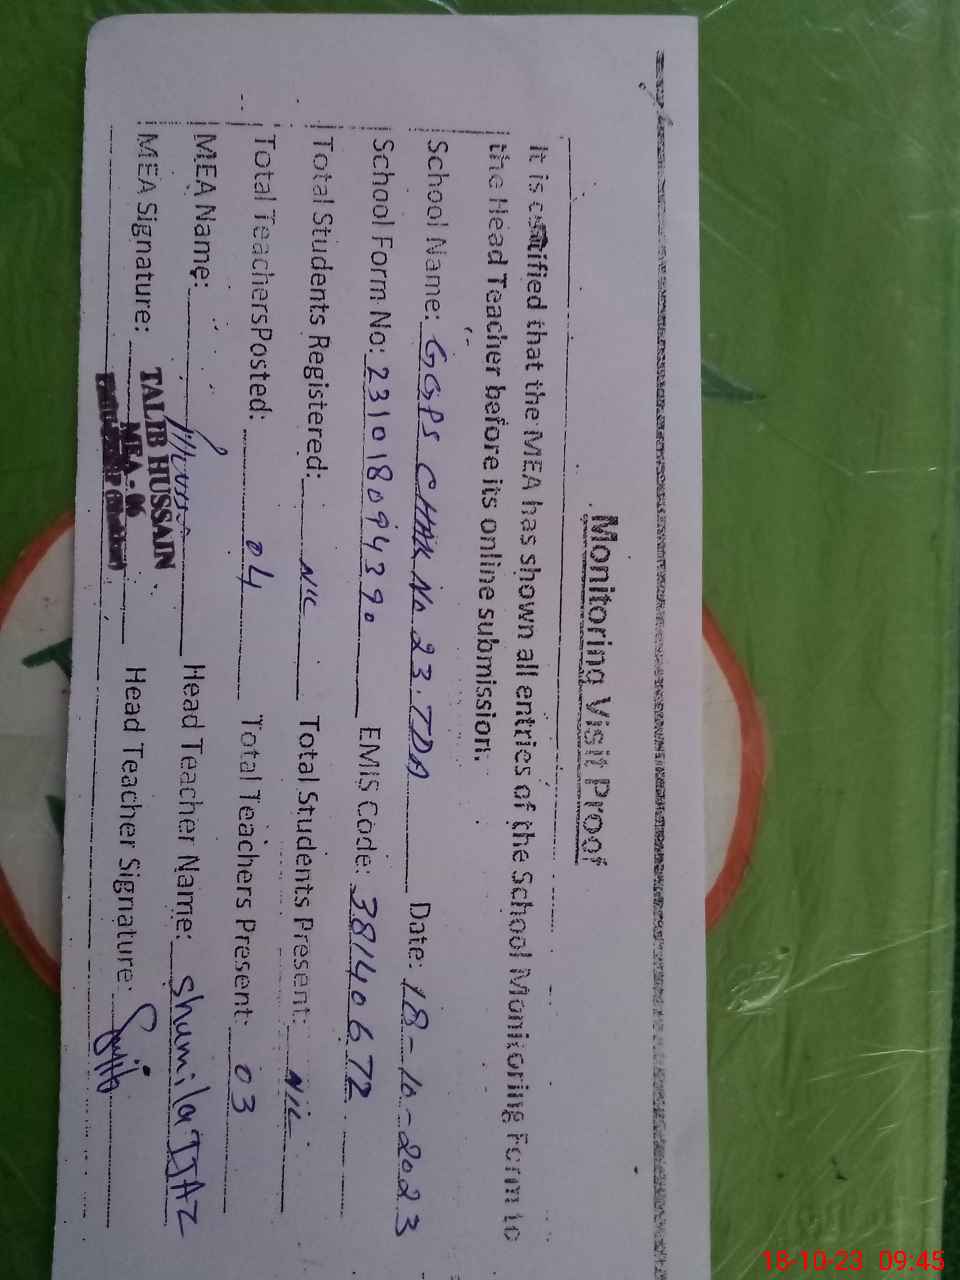 Monitoring Visit Proof
It is certified that the MEA has shown all entries of the School Monitoring Form to
the Head Teacher before its online submission.
School Name: GGPS CHAK No. 23.TDA Date: 18-10-2023
School Form No: 231018094390 EMIS Code: 38140672
Total Students Registered: NIL Total Students Present: NIL
Total TeachersPosted: 04 Total Teachers Present: 03
MEA Name: Head Teacher Name: Shumila IJAZ
MEA Signature: TALIB HUSSAIN Head Teacher Signature:
MEA - 06
18-10-23 09:45